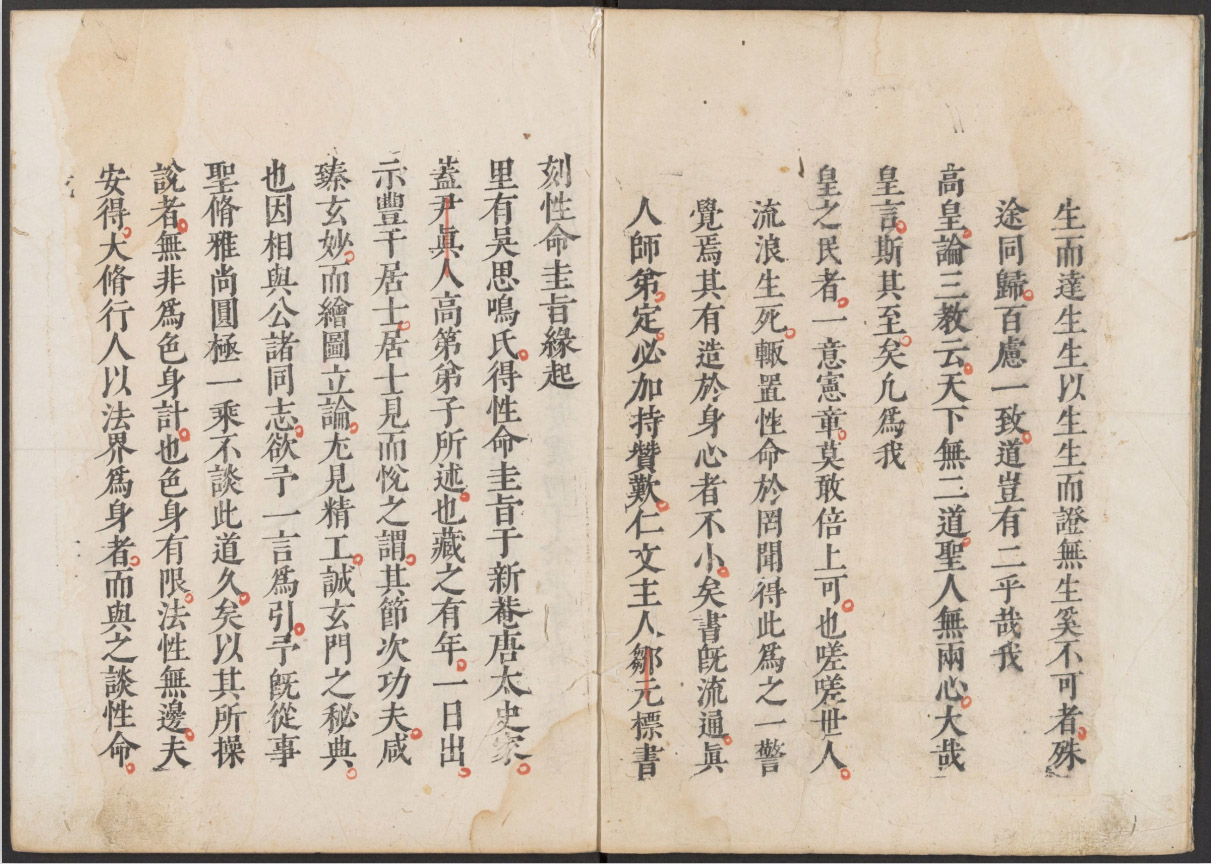 生而達生生以生生而證無生奚不可者殊
途同歸百慮一致道豈有二乎哉我
高皇論三教云天下無二道聖人無兩心大哉
皇言斯其至矣凢爲我
皇之民者一意憲章莫敢倍上可也嗟嗟世人
流浪生死輙置性命於罔聞得此爲之一警
覺焉其有造於身心者不小矣書旣流通眞
人師第定必加持贊歎仁文主人鄒元標書
刻性命圭旨緣起
里有吳思鳴氏得性命圭旨于新菴唐太史家
蓋尹眞人高第弟子所述也藏之有年一日出
示豐干居士居士見而悅之謂其節次功夫咸
臻玄妙而繪圖立論尢見精工誠玄門之秘典
也因相與公諸同志欲予一言爲引予旣從事
聖脩雅尚圓極一乘不談此道久矣以其所操
說者無非爲色身計也色身有限法性無邊夫
安得大脩行人以法界爲身者而與之談性命